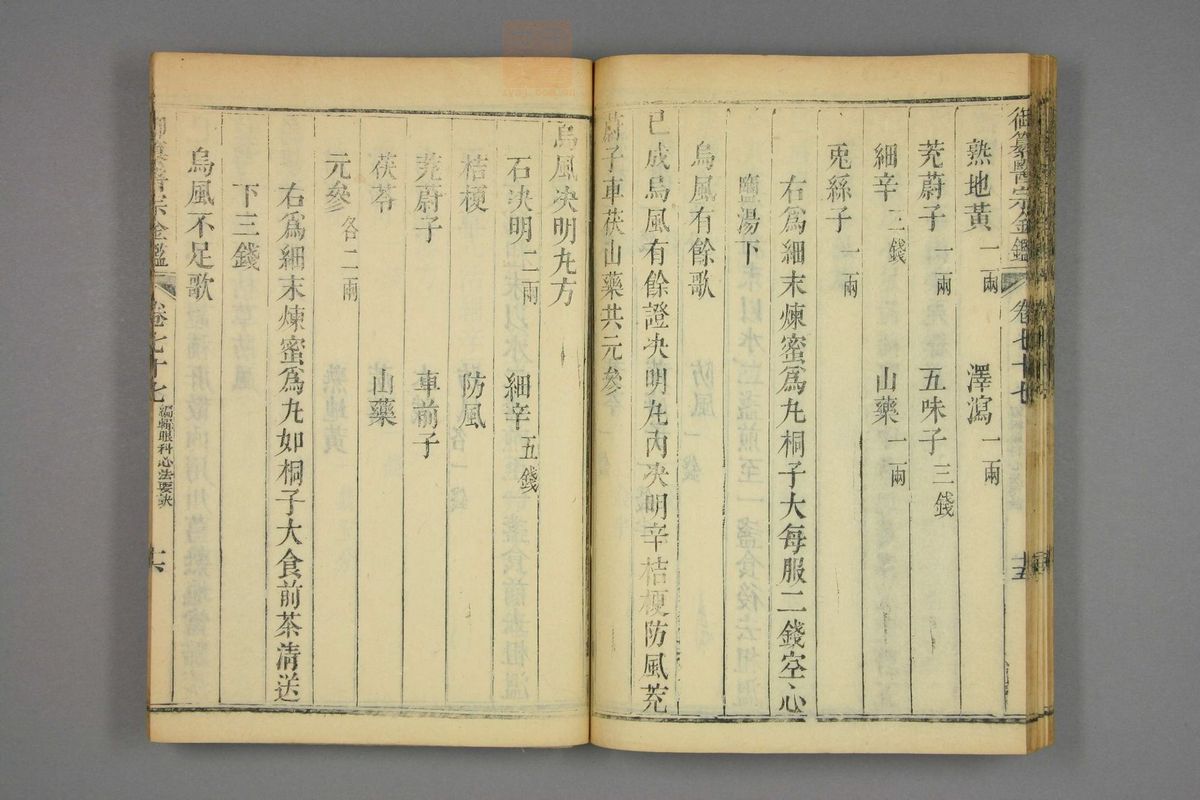 御纂醫宗金鑑 卷七十七 十五
熟地黃一兩 澤瀉一兩
茺蔚子一兩 五味子三錢
細辛二錢 山藥一兩
兎絲子一兩
右爲細末煉蜜爲丸桐子大每服二錢空心
鹽湯下
烏風有餘歌
已成烏風有餘證決明丸內決明辛桔梗防風茺
蔚子車茯山藥共元參
烏風決明丸方
石決明二兩 細辛五錢
桔梗 防風
茺蔚子 車前子
茯苓 山藥
元參各二兩
右爲細末煉蜜爲丸如桐子大食前茶清送
下三錢
烏風不足歌
御纂醫宗金鑑 卷七十七 編輯眼科心法要訣 十六